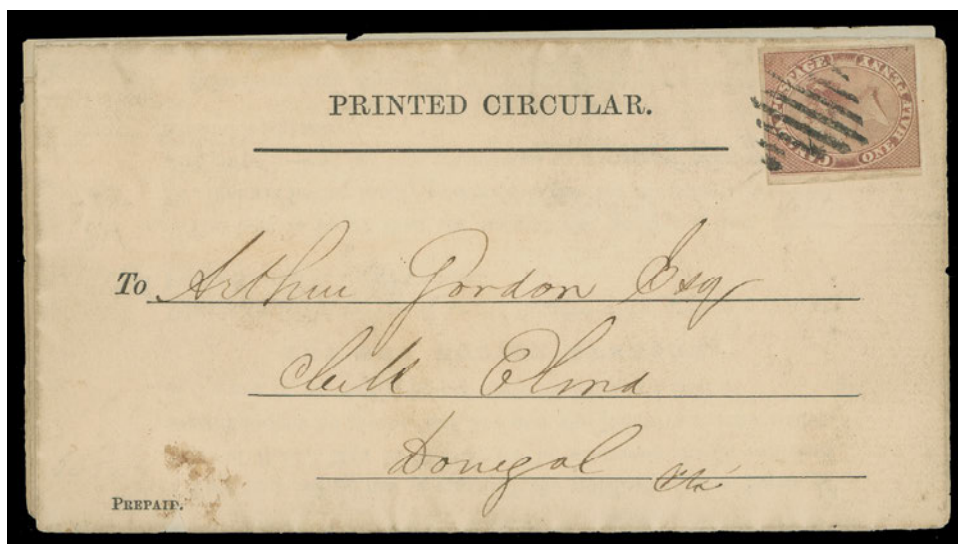 PRINTED CIRCULAR.
CANADA POSTAGE ONE HALF PENNY
To Arthur Gordon Esq
Clerk Elma
Donegal
PREPAID.